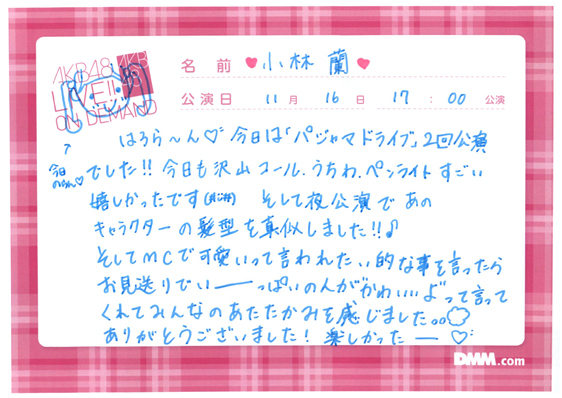 AKB48 LIVE!! ON DEMAND
名前 ♥小林 蘭♥
公演日 11月 16日 17:00 公演
はろら〜ん♡ 今日は「パジャマドライブ」2回公演
でした!! 今日も沢山コール、うちわ、ペンライトすごい
今日のらん♡
嬉しかったです そして夜公演であの
キャラクターの髪型を真似しました!!♪
そしてMCで可愛いって言われたい的な事を言ったら
お見送りでいーーっぱいの人が"かわいいよ"って言って
くれてみんなのあたたかみを感じました。。
ありがとうございました! 楽しかったー♡
DMM.com